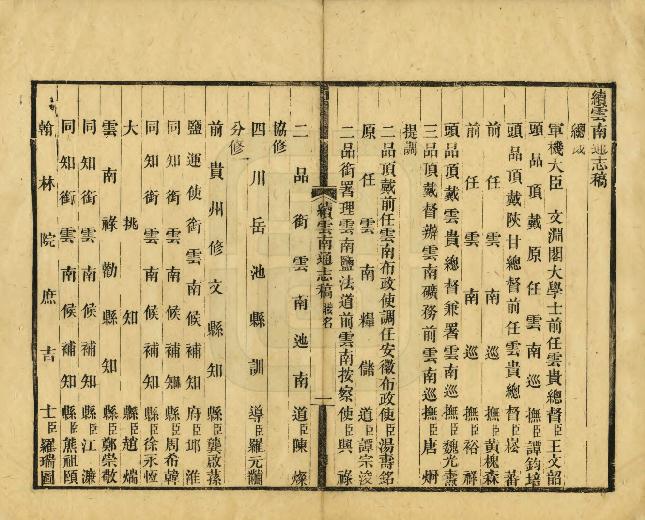 續雲南通志稿
總裁
軍機大臣文淵閣大學士前任雲貴總督臣王文韶
頭品頂戴原任雲南巡撫臣譚鈞培
頭品頂戴陝甘總督前任雲貴總督臣崧蕃
前任雲南巡撫臣黃槐森
前任雲南巡撫臣裕祥
頭品頂戴雲貴總督兼署雲南巡撫臣魏光燾
三品頂戴督辦雲南礦務前雲南巡撫臣唐炯
提調
二品頂戴前任雲南布政使調任安徽布政使臣湯壽銘
原任雲南糧儲道臣譚宗浚
二品銜署理雲南鹽法道前雲南按察使臣興祿
續雲南通志稿 職名 一
二品銜雲南迤南道臣陳燦
協修
四川岳池縣訓導臣羅元黼
分修
前貴州修文縣知縣臣龔啟蓀
鹽運使銜雲南候補知府臣邱淮
同知銜雲南候補知縣臣周希韓
同知銜雲南候補知縣臣徐永恆
大挑知縣臣趙端
雲南祿勸縣知縣臣鄭崇敬
同知銜雲南候補知縣臣江濂
同知銜雲南候補知縣臣熊祖頤
翰林院庶吉士臣羅瑞圖